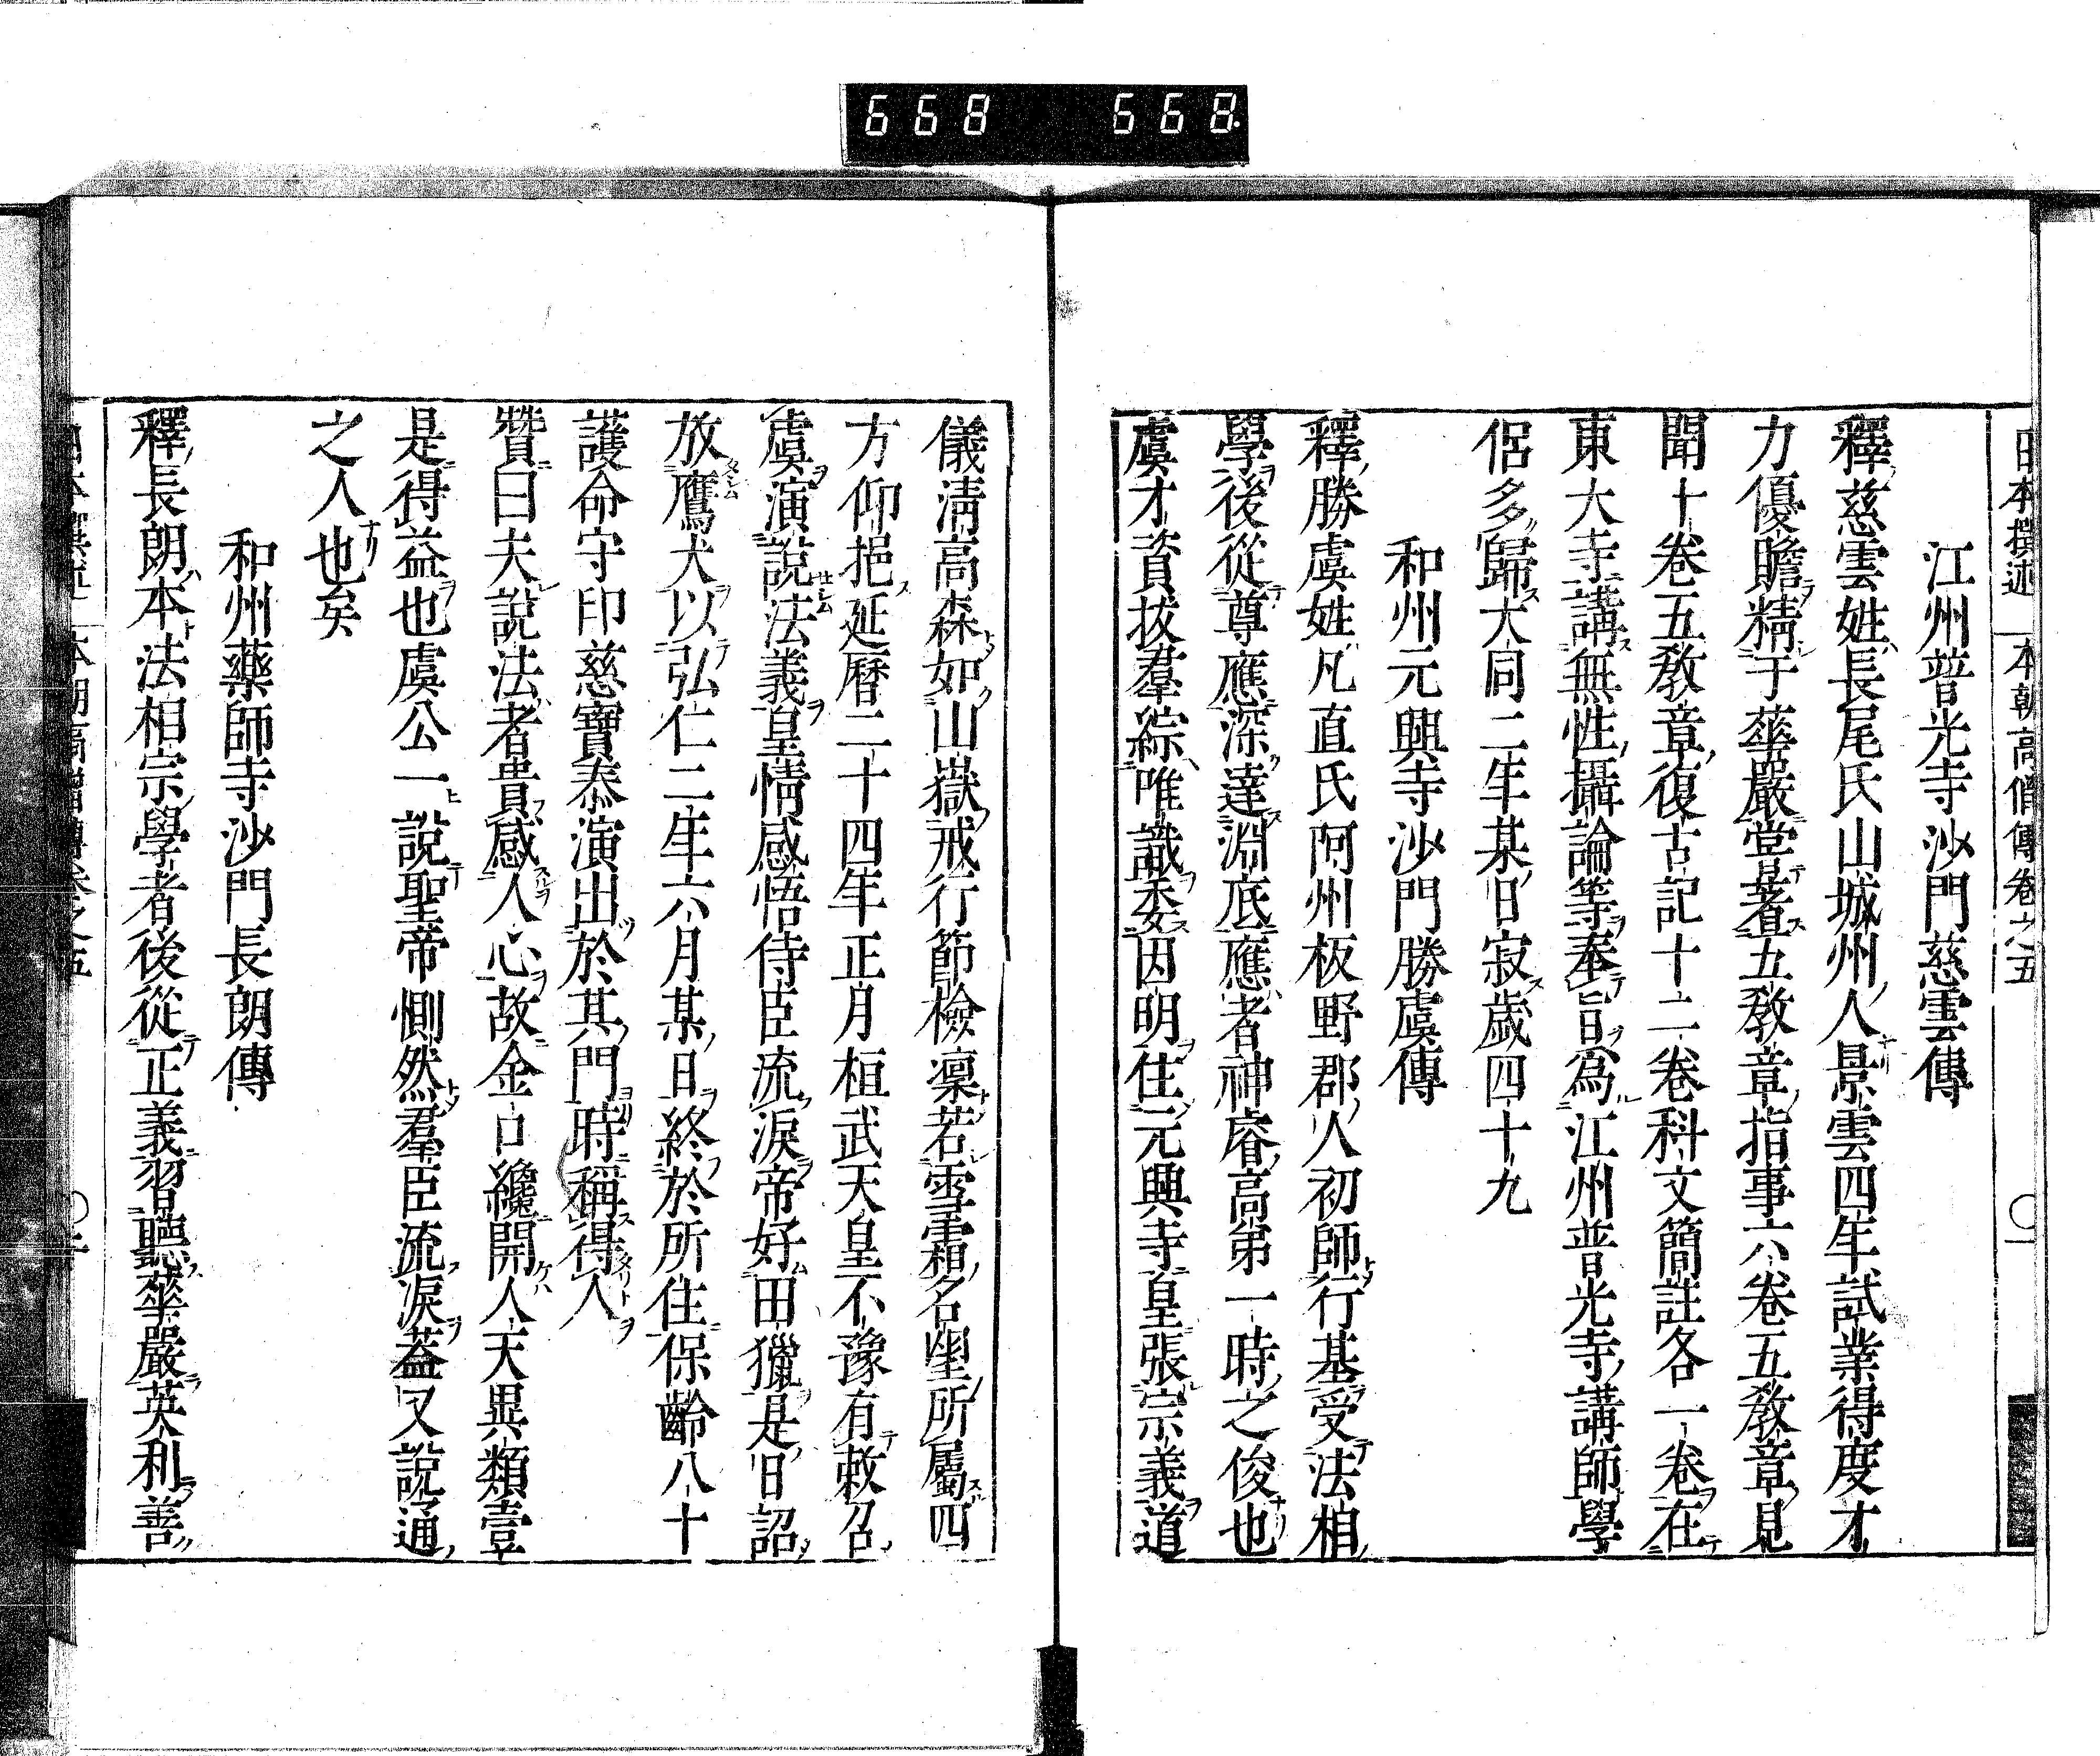 668 668.
日本撰述 本朝高僧傳卷之五 一
江州普光寺沙門慈雲傳
釋慈雲姓長尾氏山城州人景雲四年試業得度才
力優贍精于華嚴嘗著五教章指事六卷五教章見
聞十卷五教章復古記十二卷科文簡註各一卷在
東大寺講無性攝論等奉旨爲江州普光寺講師學
侶多歸大同二年某日寂歲四十九
和州元興寺沙門勝虞傳
釋勝虞姓凡直氏阿州板野郡人初師行基受法相
學後從尊應深達淵底應者神睿高第一時之俊也
虞才資拔羣綜唯識委因明住元興寺皇張宗義道
儀淸高森如山嶽戒行節檢凜若雪霜名望所屬四
方仰挹延曆二十四年正月桓武天皇不豫有敕召
虞演說法義皇情感悟侍臣流淚帝好田獵是日詔
放鷹犬以弘仁二年六月某日終於所住保齡八十
護命守印慈寶泰演出於其門時稱得人
贊曰夫說法者貴感人心故金口纔開人天異類壹
是得益也虞公一說聖帝惻然羣臣流淚蓋又說通
之人也矣
和州藥師寺沙門長朗傳
釋長朗本法相宗學者後從正義習聽華嚴英利善